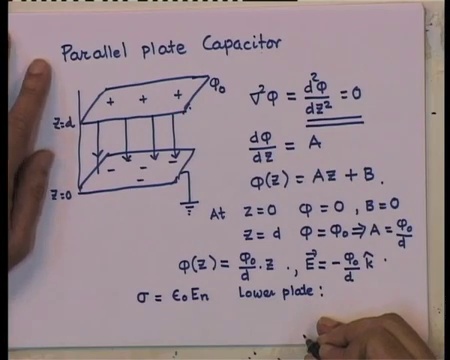 Parallel plate Capacitor
+ + +
φ₀
z=d
- - -
-
z=0
∇²φ = d²φ/dz² = 0
dφ/dz = A
φ(z) = Az + B.
At z=0 φ=0, B=0
z=d φ=φ₀ ⇒ A = φ₀/d
φ(z) = φ₀/d · z , E⃗ = - φ₀/d k̂ .
σ = ε₀En Lower plate: